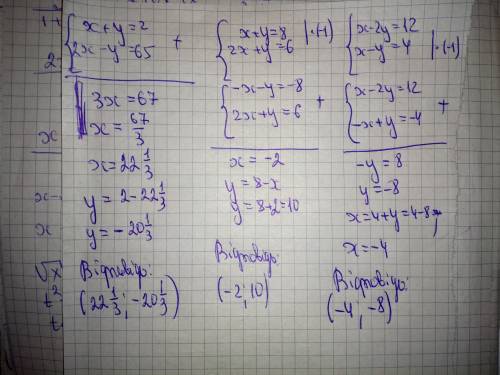 x+y=2
2x-y=65 +
3x=67
x=67/3
x=22 1/3
y=2-22 1/3
y=-20 1/3
Відповідь:
(22 1/3; -20 1/3)
x+y=8 |·(-1)
2x+y=6
-x-y=-8
2x+y=6 +
x=-2
y=8-x
y=8+2=10
Відповідь:
(-2; 10)
x-2y=12
x-y=4 |·(-1)
x-2y=12
-x+y=-4 +
-y=8
y=-8
x=4+y=4-8;
x=-4
Відповідь:
(-4; -8)